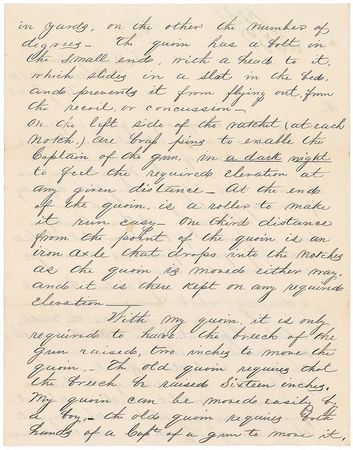 in yards, on the other the number of
degrees — The quoin has a bolt in
the small end, with a head to it,
which slides in a slat in the bed,
and prevents it from flying out, from
the recoil, or concussion —
On the left side of the ratchet (at each
notch,) are brass pins to enable the
Captain of the gun, in a dark night
to feel the required elevation at
any given distance — At the end
of the quoin, is a roller to make
it run easy — One third distance
from the point of the quoin is an
iron axle that drops into the notches
as the quoin is moved either way,
and it is there kept on any required
elevation —
With my quoin, it is only
required to have the breech of the
gun raised, two inches to move the
quoin — The old quoin requires that
the breech be raised Sixteen inches.
My quoin can be moved easily by
a boy, — the old quoin requires both
hands of a Capt of a gun to move it,